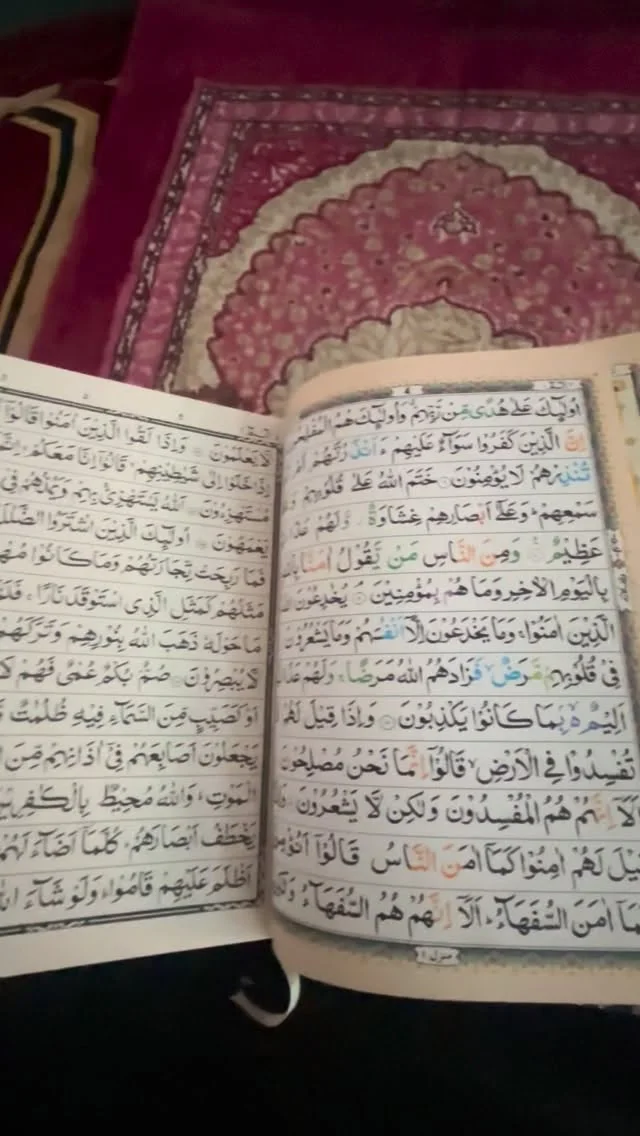 اُولٰٓئِكَ عَلٰى هُدًى مِّنْ رَّبِّهِمْ وَاُولٰٓئِكَ هُمُ الْمُفْلِحُوْنَ
اِنَّ الَّذِيْنَ كَفَرُوْا سَوَآءٌ عَلَيْهِمْ ءَاَنْذَرْتَهُمْ اَمْ
تُنْذِرْهُمْ لَا يُؤْمِنُوْنَ خَتَمَ اللّٰهُ عَلٰى قُلُوْبِهِمْ
سَمْعِهِمْ وَعَلٰٓى اَبْصَارِهِمْ غِشَاوَةٌ وَّلَهُمْ
عَظِيْمٌ وَمِنَ النَّاسِ مَنْ يَّقُوْلُ اٰمَنَّا
بِالْيَوْمِ الْاٰخِرِ وَمَا هُمْ بِمُؤْمِنِيْنَ يُخٰدِعُوْنَ
الَّذِيْنَ اٰمَنُوْا وَمَا يَخْدَعُوْنَ اِلَّآ اَنْفُسَهُمْ وَمَا يَشْعُرُوْنَ
فِىْ قُلُوْبِهِمْ مَّرَضٌ فَزَادَهُمُ اللّٰهُ مَرَضًا وَلَهُمْ
اَلِيْمٌ بِمَا كَانُوْا يَكْذِبُوْنَ وَاِذَا قِيْلَ لَهُمْ
تُفْسِدُوْا فِى الْاَرْضِ قَالُوْٓا اِنَّمَا نَحْنُ مُصْلِحُوْنَ
اَلَآ اِنَّهُمْ هُمُ الْمُفْسِدُوْنَ وَلٰكِنْ لَّا يَشْعُرُوْنَ
قِيْلَ لَهُمْ اٰمِنُوْا كَمَآ اٰمَنَ النَّاسُ قَالُوْٓا اَنُؤْمِنُ
كَمَآ اٰمَنَ السُّفَهَآءُ اَلَآ اِنَّهُمْ هُمُ السُّفَهَآءُ
منزل ١
لَّا يَعْلَمُوْنَ وَاِذَا لَقُوا الَّذِيْنَ اٰمَنُوْا قَالُوْٓا
اِذَا خَلَوْا اِلٰى شَيٰطِيْنِهِمْ قَالُوْٓا اِنَّا مَعَكُمْ
مُسْتَهْزِءُوْنَ اَللّٰهُ يَسْتَهْزِئُ بِهِمْ وَيَمُدُّهُمْ فِىْ
يَعْمَهُوْنَ اُولٰٓئِكَ الَّذِيْنَ اشْتَرَوُا الضَّلٰلَةَ
فَمَا رَبِحَتْ تِّجَارَتُهُمْ وَمَا كَانُوْا
مَثَلُهُمْ كَمَثَلِ الَّذِى اسْتَوْقَدَ نَارًا
مَا حَوْلَهٗ ذَهَبَ اللّٰهُ بِنُوْرِهِمْ وَتَرَكَهُمْ
لَّا يُبْصِرُوْنَ صُمٌّۢ بُكْمٌ عُمْىٌ فَهُمْ لَا
اَوْ كَصَيِّبٍ مِّنَ السَّمَآءِ فِيْهِ ظُلُمٰتٌ
يَجْعَلُوْنَ اَصَابِعَهُمْ فِىْٓ اٰذَانِهِمْ مِّنَ
الْمَوْتِ وَاللّٰهُ مُحِيْطٌۢ بِالْكٰفِرِيْنَ
يَخْطَفُ اَبْصَارَهُمْ كُلَّمَآ اَضَآءَ لَهُمْ
اَظْلَمَ عَلَيْهِمْ قَامُوْا وَلَوْ شَآءَ